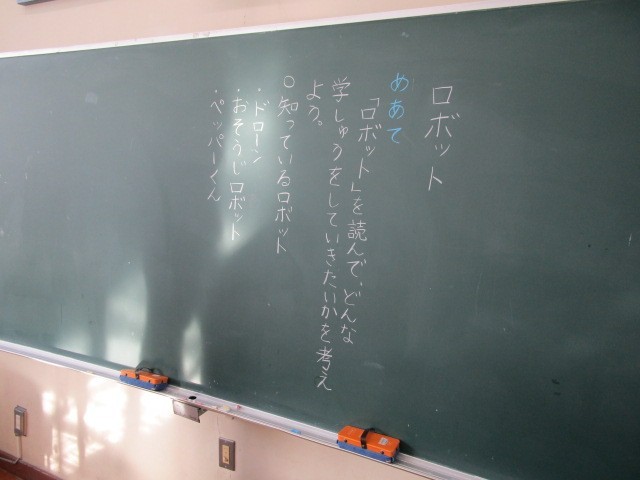 ロボット
めあて
「ロボット」を読んで、どんな
学しゅうをしていきたいかを考え
よう。
○知っているロボット
・ドローン
・おそうじロボット
・ペッパーくん